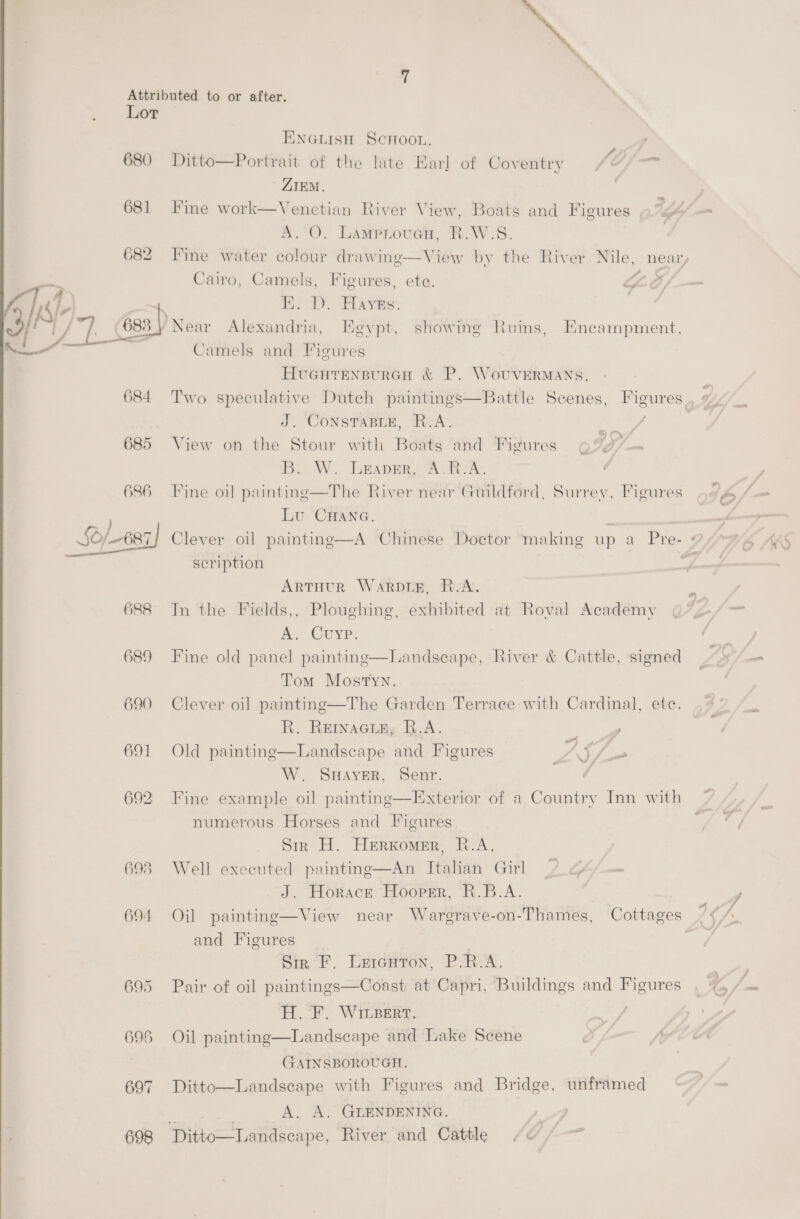 7
Attributed to or after.
Lot
English School.
680 Ditto—Portrait of the late Earl of Coventry
Ziem.
681 Fine work—Venetian River View, Boats and Figures
A. O. Lamplough, R.W.S.
682 Fine water colour drawing—View by the River Nile, near
Cairo, Camels, Figures, etc.
E. D. Hayes.
683 Near Alexandria, Egypt, showing Ruins, Encampment,
Camels and Figures
Hughtensburgh & P. Wouvermans.
684 Two speculative Dutch paintings—Battle Scenes, Figures
J. Constable, R.A.
685 View on the Stour with Boats and Figures
B. W. Leader, A.R.A.
686 Fine oil painting—The River near Guildford, Surrey, Figures
Lu Chang.
687 Clever oil painting—A Chinese Doctor making up a Pre-
scription
Arthur Wardle, R.A.
688 In the Fields,, Ploughing, exhibited at Royal Academy
A. Cuyp.
689 Fine old panel painting—Landscape, River & Cattle, signed
Tom Mostyn.
690 Clever oil painting—The Garden Terrace with Cardinal, etc.
R. Reinagle, R.A.
691 Old painting—Landscape and Figures
W. Shayer, Senr.
692 Fine example oil painting—Exterior of a Country Inn with
numerous Horses and Figures
Sir H. Herkomer, R.A.
693 Well executed painting—An Italian Girl
J. Horace Hooper, R.B.A.
694 Oil painting—View near Wargrave-on-Thames, Cottages
and Figures
Sir F. Leighton, P.R.A.
695 Pair of oil paintings—Coast at Capri, Buildings and Figures
H. F. Wilbert.
696 Oil painting—Landscape and Lake Scene
Gainsborough.
697 Ditto—Landscape with Figures and Bridge, unframed
A. A. Glendening.
698 Ditto—Landscape, River and Cattle